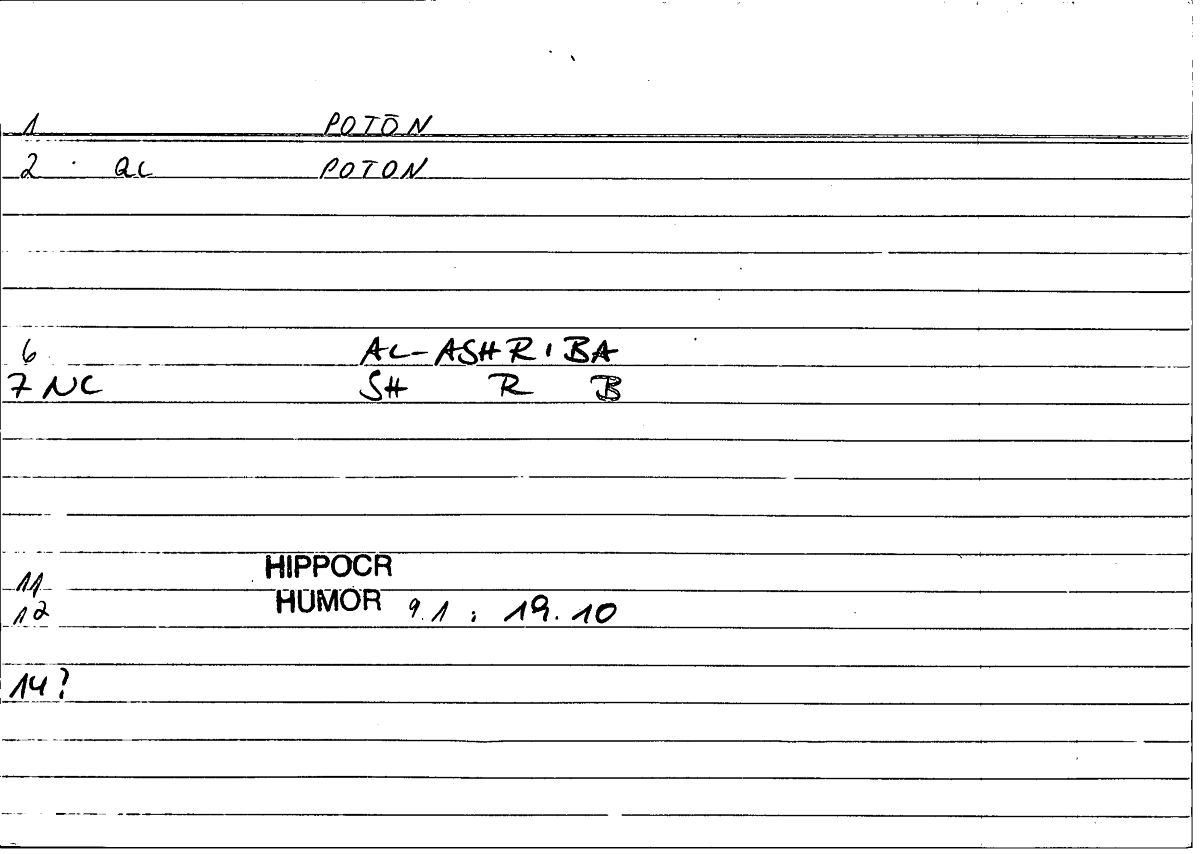 1 POTŌN
2 · QL POTON
6 AL-ASHRIBA
7 NC SH R B
11 HIPPOCR
12 HUMOR 9.1 : 19.10
14?